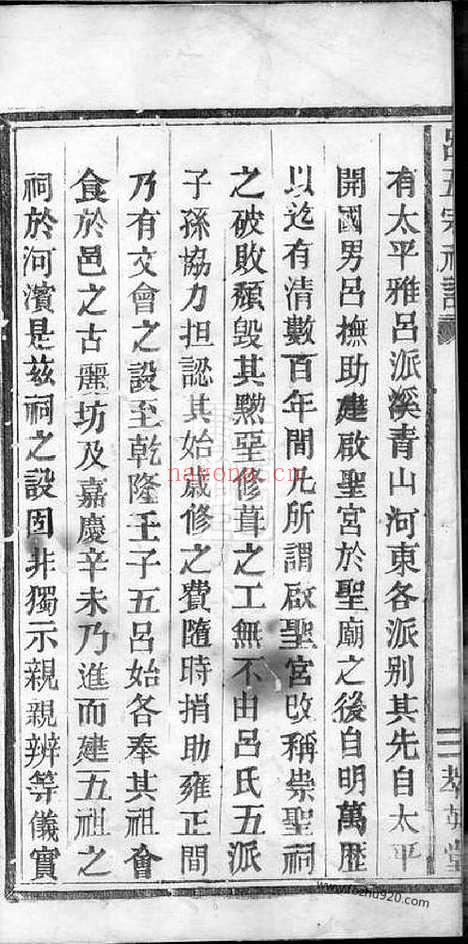 有太平雅呂派溪青山河東各派別其先自太平
開國男呂撫助建啟聖宮於聖廟之後自明萬歷
以迄有清數百年間凡所謂啟聖宮改稱崇聖祠
之破敗頹毀其黝堊修葺之工無不由呂氏五派
子孫協力担認其始歲修之費隨時捐助雍正間
乃有文會之設至乾隆壬子五呂始各奉其祖會
食於邑之古麗坊及嘉慶辛未乃進而建五祖之
祠於河濱是兹祠之設固非獨示親親辨等儀實
nayona.cn
www.fozhu920.com